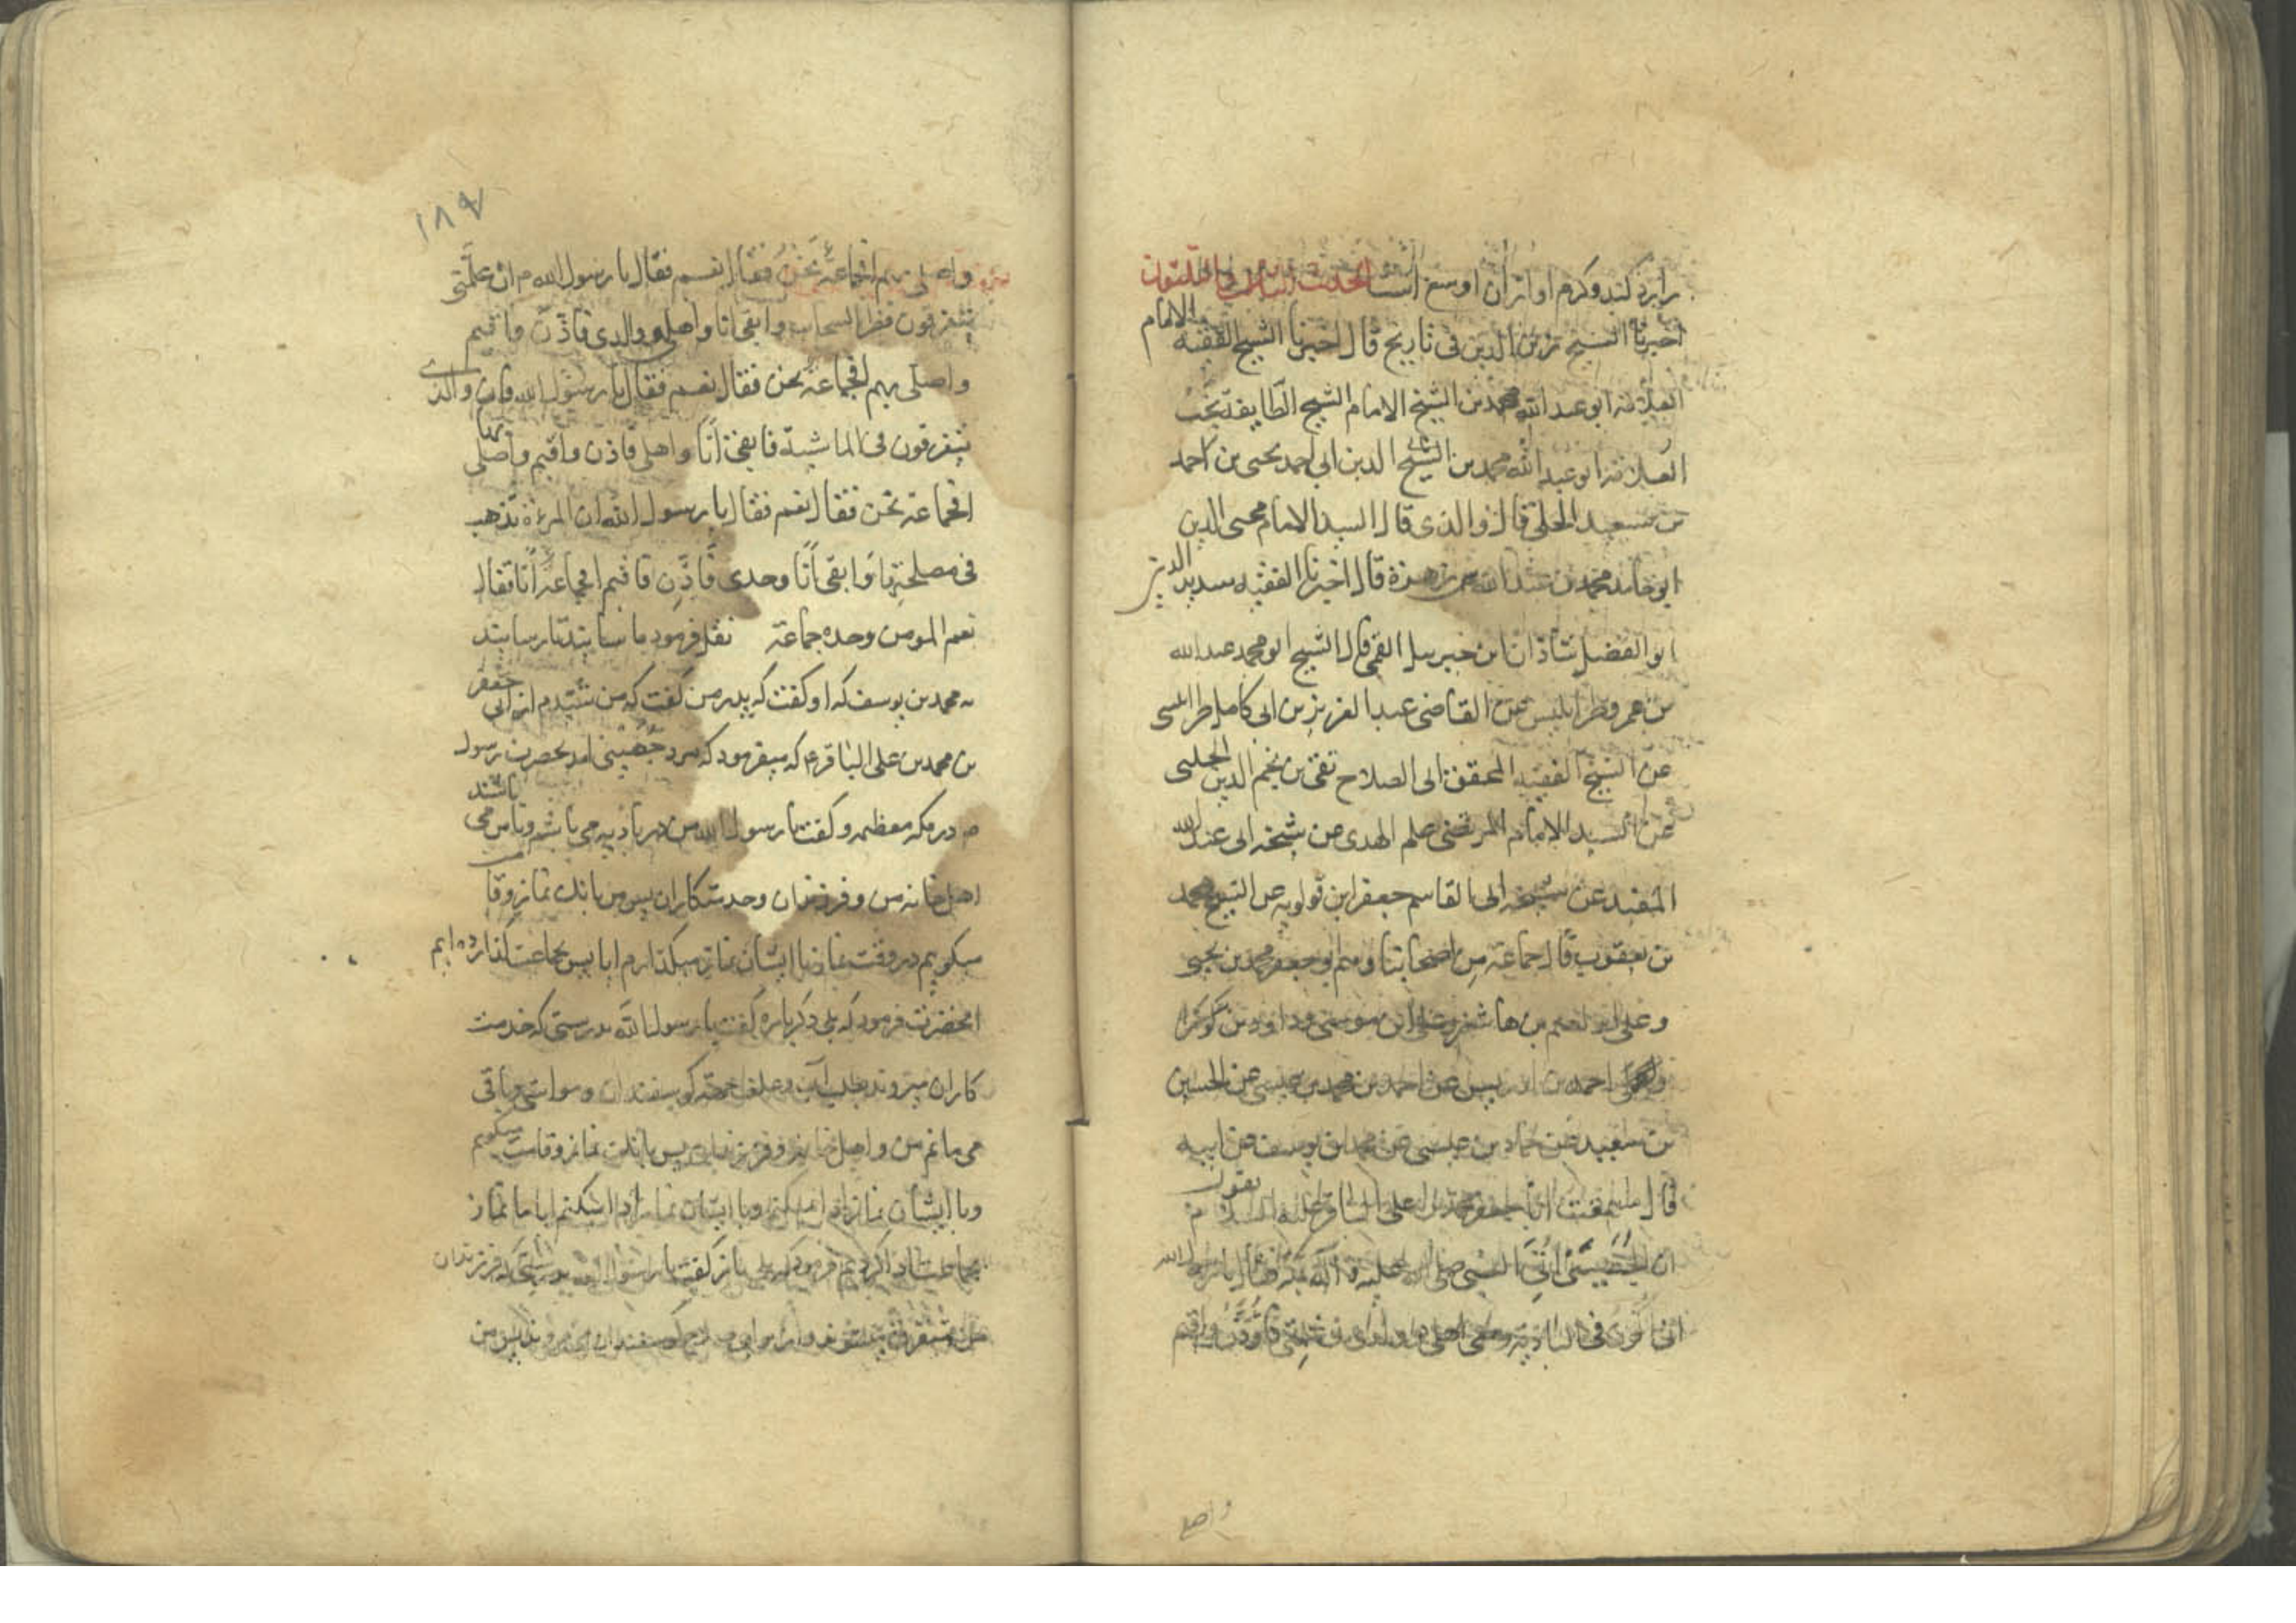 را برد کند و کرم او از آن اوسع است الحدیث السابع و الثلثون
اخبرنا الشیخ زین الدین فی تاریخ قال اخبرنا الشیخ الفقیه الامام
العلامه ابو عبد الله محمد بن الشیخ الامام الشیخ الطایفه نجیب
العلامه ابو عبد الله محمد بن الشیخ الدین ابی احمد یحیی بن احمد
بن سعید الحلی قال والدی قال السید الامام محیی الدین
ابو حامد محمد بن عبد الله بن زهرة قال اخبرنا الفقیه سدید الدین
ابو الفضل شاذان ابن جبریل القمی قال الشیخ ابو محمد عبد الله
بن عمر و طرابلیس عن القاضی عبد العزیز بن ابی کامل طرابلسی
عن الشیخ الفقیه المحقق ابی الصلاح تقی بن نجم الدین الحلبی
عن السید الامام المرتضی علم الهدی عن شیخه ابی عبد الله
المفید عن شیخه ابی القاسم جعفر ابن قولویه عن الشیخ محمد
بن یعقوب قال جماعة من اصحابنا و منهم ابو جعفر محمد بن یحیی
و علی ابن ابرهیم بن هاشم و علی ابن موسی و داود بن کوکرا
احمد بن ادریس عن احمد بن محمد بن عیسی عن الحسین
بن سعید عن حماد بن عیسی عن محمد ابن یوسف عن ابیه
قال سمعت ابا جعفر محمد بن علی الباقر علیه السلام یقول
ان الجهینی اتی النبی صلی الله علیه و آله فقال یا رسول الله
انی اکون فی البادیة و معی اهلی و ولدی و غلمتی فاؤذن و اقیم
و اصلی

۱۸۷
و اصلی بهم افجماعة نحن فقال نعم فقال یا رسول الله ص ان غلمتی
یتفرقون قطر السحاب و ابقی انا و اهلی و ولدی فاذن و اقیم
و اصلی بهم افجماعة نحن فقال نعم فقال یا رسول الله فان ولدی
یتفرقون فی الماشیة فابقی انا و اهلی فاذن و اقیم و اصلی بها
افجماعة نحن فقال نعم فقال یا رسول الله ان المرءة تذهب
فی مصلحتها و ابقی انا وحدی فاذن فاقیم افجماعة انا فقال
نعم المومن وحده جماعة نقل فرمود ما سابتدتا رسابتد
به محمد بن یوسف که او گفت که پدر من گفت که من شنیدم از ابی جعفر
بن محمد بن علی الباقر ع که میفرمود که مرد جهینی امد بحضرت رسول
ص در مکه معظمه و گفت یا رسول الله من در بادیه می باشم و با من می باشند
اهل خانه من و فرزندان و خدمتکاران پس من بانک نماز و قامت
میکویم در وقت نماز با ایشان نماز میکذارم ایا پس بجماعت کذارده ایم
انحضرت فرمود که بلی دکر باره گفت یا رسول الله بدرستی که خدمت
کاران میروند بطلب آب و علف جهة کوسفندان و مواشی و باقی
می مانم من و اهل خانه و فرزندان پس بانک نماز و قامت میکویم
و با ایشان نماز ادا میکنم ایا ما نماز
بجماعت ادا کردیم فرمود که بلی باز گفت یا رسول الله بدرستیکه فرزندان
من متفرق میشوند و از برای کوسفندان میروند پس من